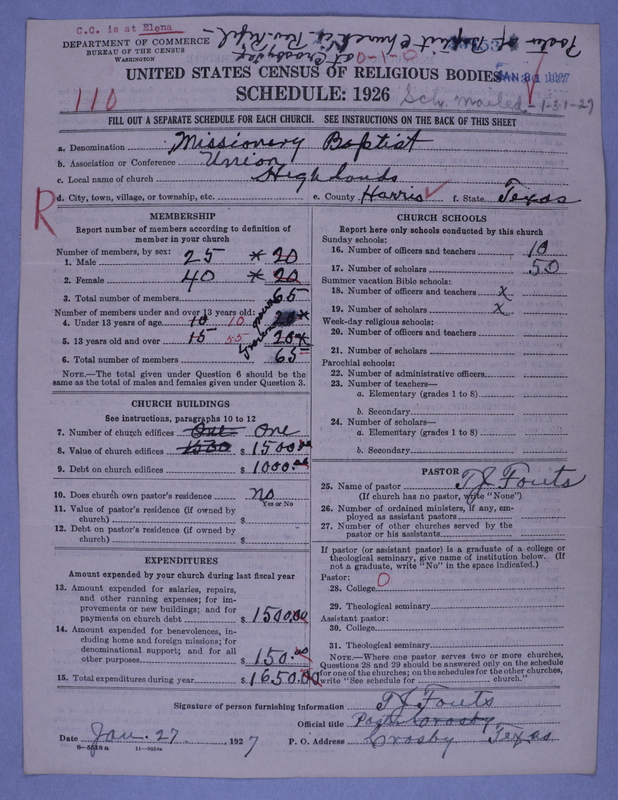 C.C. is at Elena
DEPARTMENT OF COMMERCE
BUREAU OF THE CENSUS
WASHINGTON
Pastor of Baptist Church
at Crosby, Tex
0-1-0
UNITED STATES CENSUS OF RELIGIOUS BODIES
JAN 31 1927
SCHEDULE: 1926
110
Sch. mailed - 1-31-27
FILL OUT A SEPARATE SCHEDULE FOR EACH CHURCH. SEE INSTRUCTIONS ON THE BACK OF THIS SHEET
a. Denomination Missionary Baptist
b. Association or Conference Union
c. Local name of church Highlands
R
d. City, town, village, or township, etc. e. County Harris f. State Texas
MEMBERSHIP
Report number of members according to definition of
member in your church
Number of members, by sex:
1. Male 25 * 20
2. Female 40 * 20
3. Total number of members 65
Number of members under and over 13 years old:
4. Under 13 years of age 10 10 20*
5. 13 years old and over 15 55 20*
6. Total number of members 65
NOTE.—The total given under Question 6 should be the
same as the total of males and females given under Question 3.
CHURCH BUILDINGS
See instructions, paragraphs 10 to 12
7. Number of church edifices One One
8. Value of church edifices 1500 $ 1500.00
9. Debt on church edifices $ 1000.00
10. Does church own pastor's residence no
Yes or No
11. Value of pastor's residence (if owned by
church) $
12. Debt on pastor's residence (if owned by
church) $
EXPENDITURES
Amount expended by your church during last fiscal year
13. Amount expended for salaries, repairs,
and other running expenses; for im-
provements or new buildings; and for
payments on church debt $ 1500.00
14. Amount expended for benevolences, in-
cluding home and foreign missions; for
denominational support; and for all
other purposes $ 150.00
15. Total expenditures during year $ 1650.00
CHURCH SCHOOLS
Report here only schools conducted by this church
Sunday schools:
16. Number of officers and teachers 10
17. Number of scholars 50
Summer vacation Bible schools:
18. Number of officers and teachers x
19. Number of scholars x
Week-day religious schools:
20. Number of officers and teachers
21. Number of scholars
Parochial schools:
22. Number of administrative officers
23. Number of teachers—
a. Elementary (grades 1 to 8)
b. Secondary
24. Number of scholars—
a. Elementary (grades 1 to 8)
b. Secondary
PASTOR
25. Name of pastor T J Fouts
(If church has no pastor, write "None")
26. Number of ordained ministers, if any, em-
ployed as assistant pastors
27. Number of other churches served by the
pastor or his assistants
If pastor (or assistant pastor) is a graduate of a college or
theological seminary, give name of institution below. (If
not a graduate, write "No" in the space indicated.)
Pastor:
28. College O
29. Theological seminary
Assistant pastor:
30. College
31. Theological seminary
NOTE.—Where one pastor serves two or more churches,
Questions 28 and 29 should be answered only on the schedule
for one of the churches; on the schedules for the other churches,
write "See schedule for church."
Signature of person furnishing information T J Fouts
Official title Past. Crosby
Date Jan. 27, 1927 P. O. Address Crosby Texas
8-5518 a 11-9264a